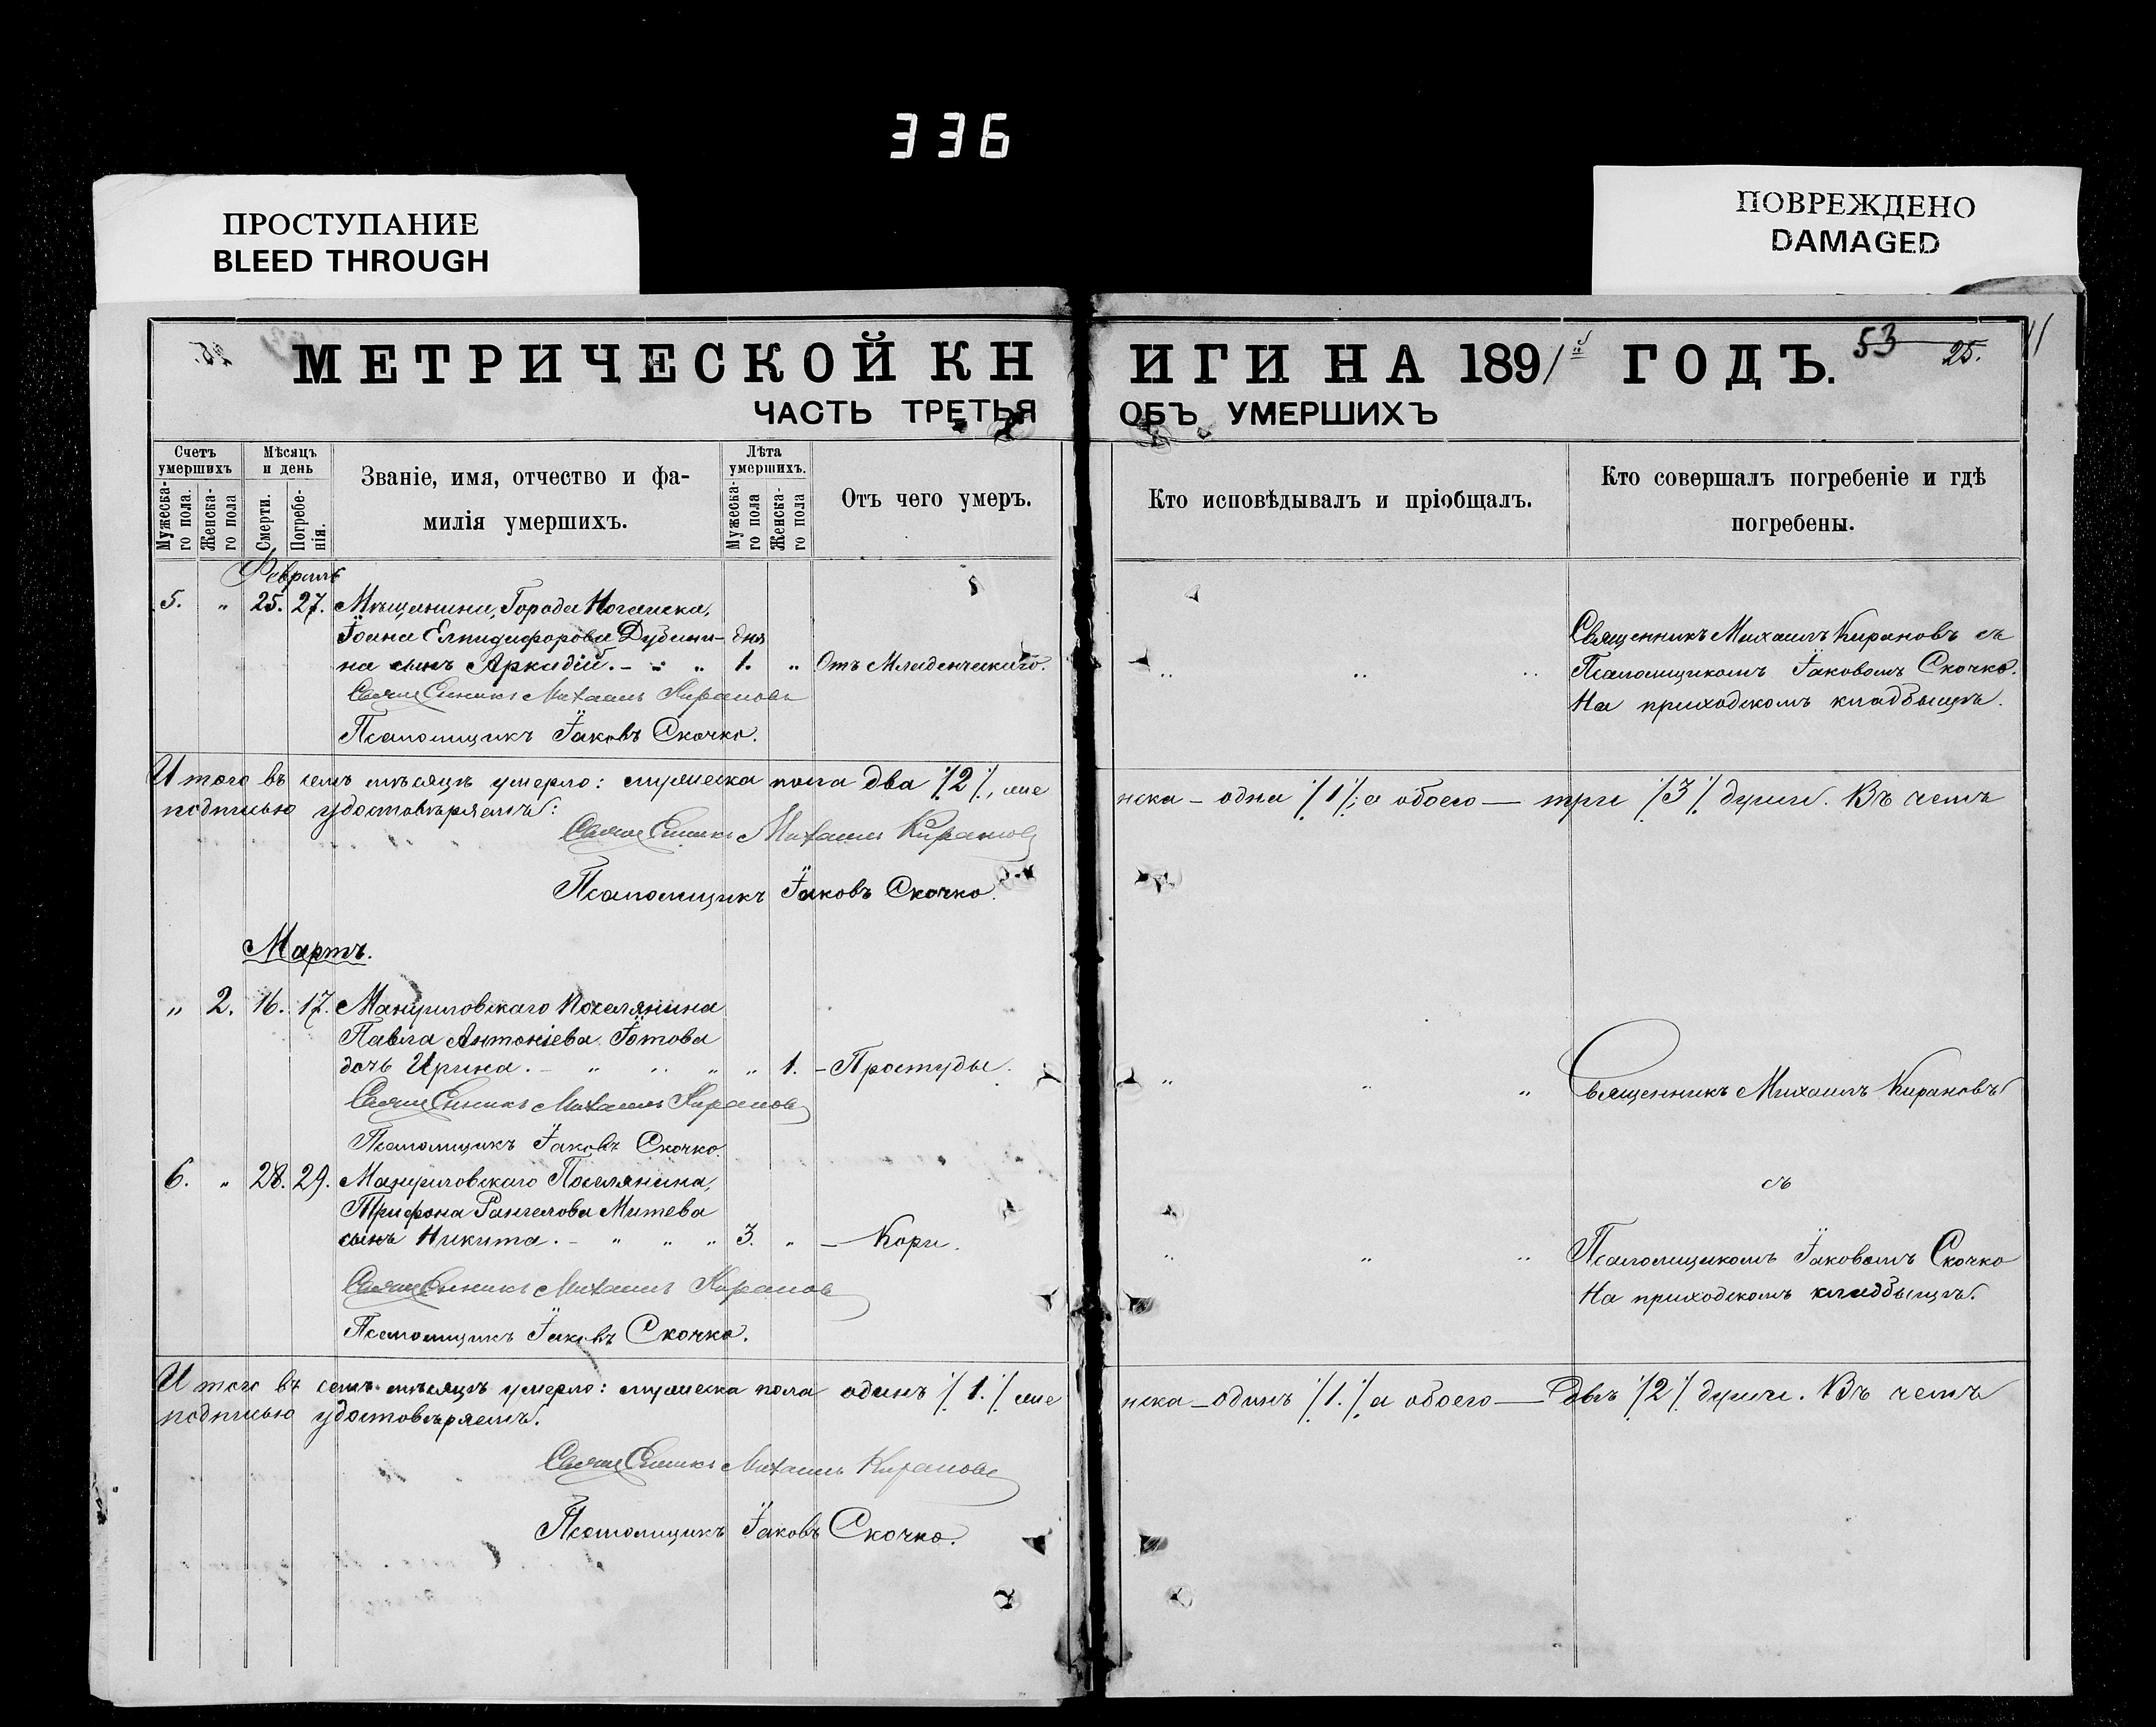 336
ПРОСТУПАНИЕ
BLEED THROUGH
ПОВРЕЖДЕНО
DAMAGED
МЕТРИЧЕСКОЙ КНИГИ НА 1891 ГОДЪ.
53 25.
ЧАСТЬ ТРЕТЬЯ ОБЪ УМЕРШИХЪ
Счетъ умершихъ
Мужеска-го пола.
Женска-го пола
Мѣсяцъ и день
Смерти.
Погребе-нія.
Званіе, имя, отчество и фа-
милія умершихъ.
Лѣта умершихъ.
Мужеска-го пола
Женска-го пола
Отъ чего умеръ.
Кто исповѣдывалъ и пріобщалъ.
Кто совершалъ погребеніе и гдѣ
погребены.
Февраль
5. „ 25. 27. Мѣщанина, Города Ногайска,
Іоана Елпидифорова Дубини- дня Священникъ Михаилъ Кирановъ съ
на сынъ Аркадій. - „ „ 1. „ Отъ Младенческаго. „ „ „ Псаломщикомъ Іаковомъ Скочко.
Священникъ Михаилъ Кирановъ На приходскомъ кладбищѣ.
Псаломщикъ Іаковъ Скочко.
Итого въ семъ мѣсяцѣ умерло: мужеска пола два /2/, же нска - одна /1/; а обоего — три /3/ души. Въ чемъ
подписью удостовѣряемъ:
Священникъ Михаилъ Кирановъ
Псаломщикъ Іаковъ Скочко.
Мартъ.
„ 2. 16. 17. Мануиловскаго Поселянина
Павла Антоніева Іотова
дочь Ирина. - „ „ „ „ 1. - Простуды. „ „ „ Священникъ Михаилъ Кирановъ
Священникъ Михаилъ Кирановъ
Псаломщикъ Іаковъ Скочко.
6. „ 28. 29. Мануиловскаго Поселянина, съ
Трифона Рангелова Митева
сынъ Никита. - „ „ „ 3. „ — Кори. „ „ „ Псаломщикомъ Іаковомъ Скочко
Священникъ Михаилъ Кирановъ На приходскомъ кладбищѣ.
Псаломщикъ Іаковъ Скочко.
Итого въ семъ мѣсяцѣ умерло: мужеска пола одинъ /1./ же нска - одинъ /1./ а обоего — двѣ /2/ души. Въ чемъ
подписью удостовѣряемъ.
Священникъ Михаилъ Кирановъ
Псаломщикъ Іаковъ Скочко.